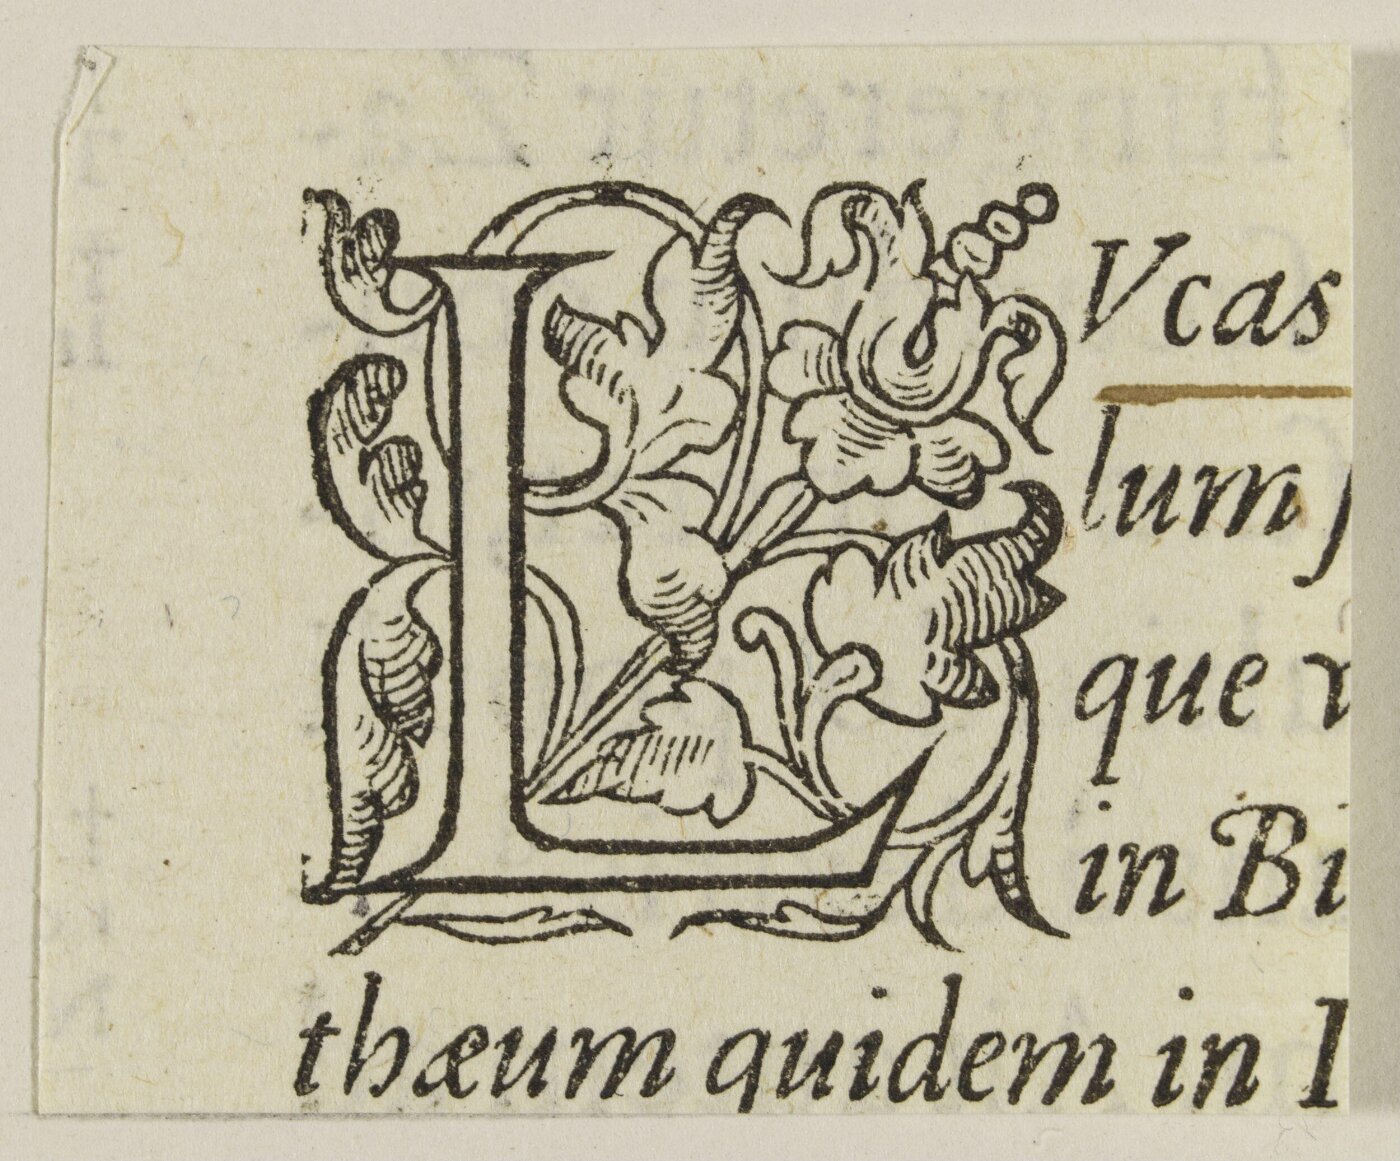 LVcas
lum
que
in Bi
thæum quidem in I